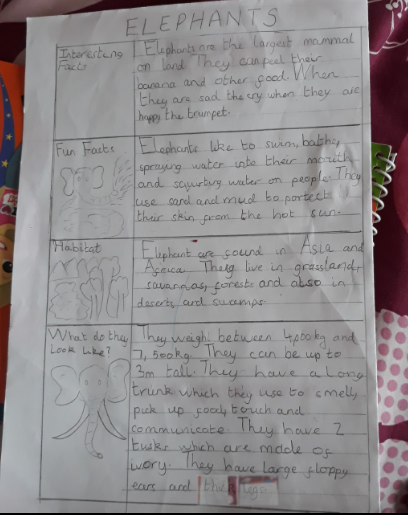 ELEPHANTS
Interesting
Facts
Elephants are the largest mammal
on land They can peel their
banana and other food. When
they are sad the cry when they are
happy the trumpet.
Fun Facts
Elephants like to swim, bathe,
spraying water into their mouth
and squirting water on people. They
use sand and mud to portect
their skin from the hot sun.
Habitat
Elephant are found in Asia and
Africa. They live in grassland,
savannas, forests and also in
deserts and swamps.
What do they
Look Like?
They weigh between 4,000kg and
7,500kg. They can be up to
3m tall. They have a long
trunk which they use to smell,
pick up food, touch and
communicate. They have 2
tusks which are made of
ivory. They have large floppy
ears and thick legs.